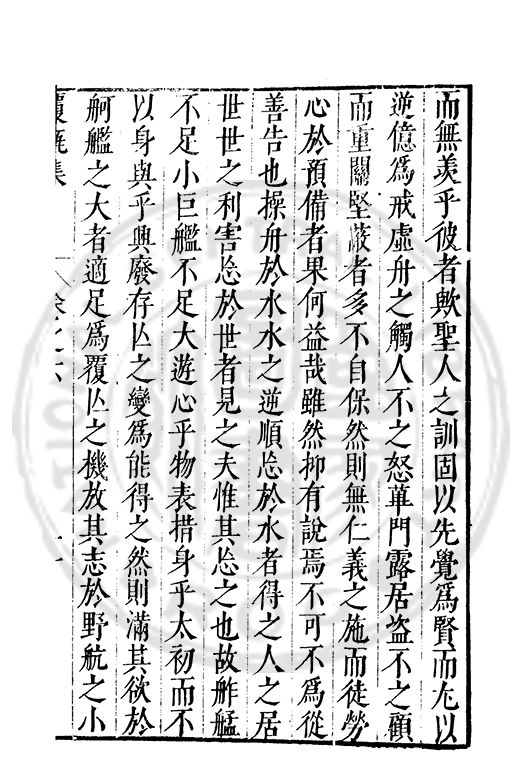 而無羡乎彼者歟聖人之訓固以先覺爲賢而尤以
逆億爲戒虛舟之觸人不之怒蓽門露居盗不之顧
而重關堅蔽者多不自保然則無仁義之施而徒勞
心於預備者果何益哉雖然抑有說焉不可不爲從
善告也操舟於水水之逆順㤀於水者得之人之居
世世之利害㤀於世者見之夫惟其㤀之也故舴艋
不足小巨艦不足大遊心乎物表措身乎太初而不
以身與乎興廢存亾之變爲能得之然則滿其欲於
舸艦之大者適足爲覆亾之機放其志於野航之小
覆瓿集
卷之六